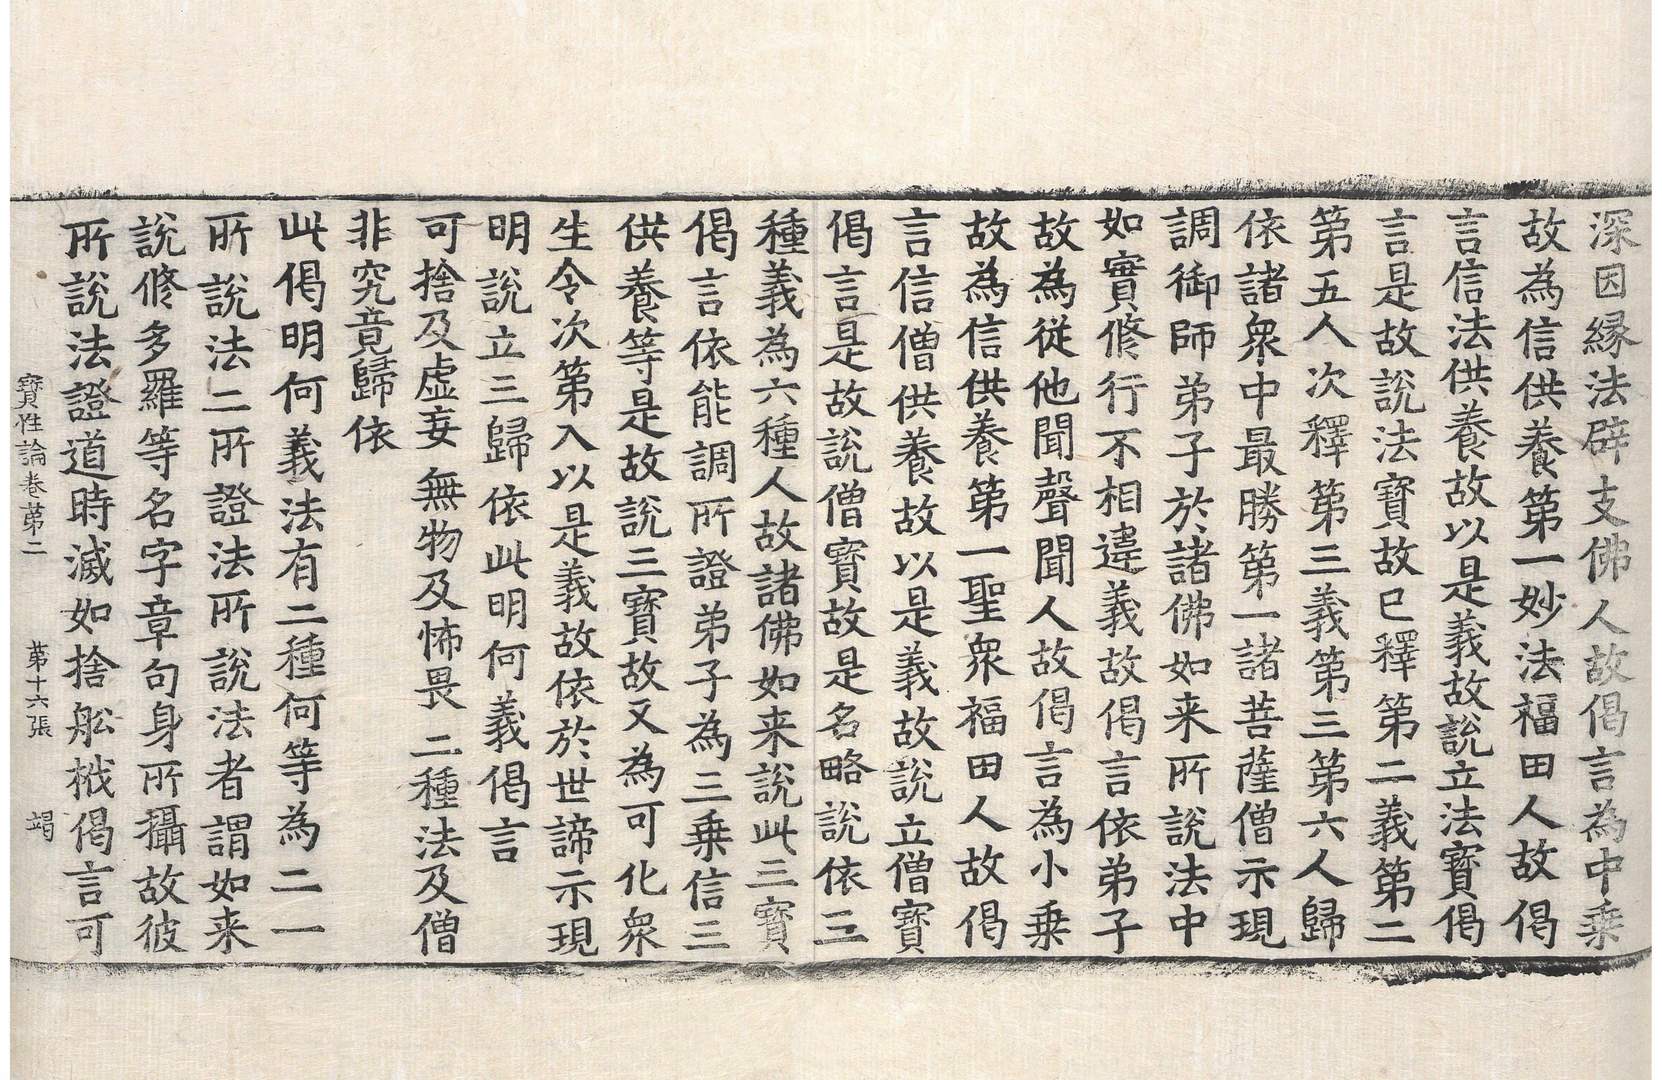 深因縁法辟支佛人故偈言為中乗
故為信供養第一妙法福田人故偈
言信法供養故以是義故說立法寶偈
言是故說法寶故已釋第二義第二
第五人次釋第三義第三第六人歸
依諸衆中最勝第一諸菩薩僧示現
調御師弟子於諸佛如来所說法中
如實修行不相違義故偈言依弟子
故為從他聞聲聞人故偈言為小乗
故為信供養第一聖衆福田人故偈
言信僧供養故以是義故說立僧寶
偈言是故說僧寶故是名略說依三
種義為六種人故諸佛如来說此三寶
偈言依能調所證弟子為三乗信三
供養等是故說三寶故又為可化衆
生令次第入以是義故依於世諦示現
明說立三歸依此明何義偈言
可捨及虛妄 無物及怖畏 二種法及僧
非究竟歸依
此偈明何義法有二種何等為二一
所說法二所證法所說法者謂如来
說修多羅等名字章句身所攝故彼
所說法證道時滅如捨舩栰偈言可
寶性論卷第二 第十六張 竭